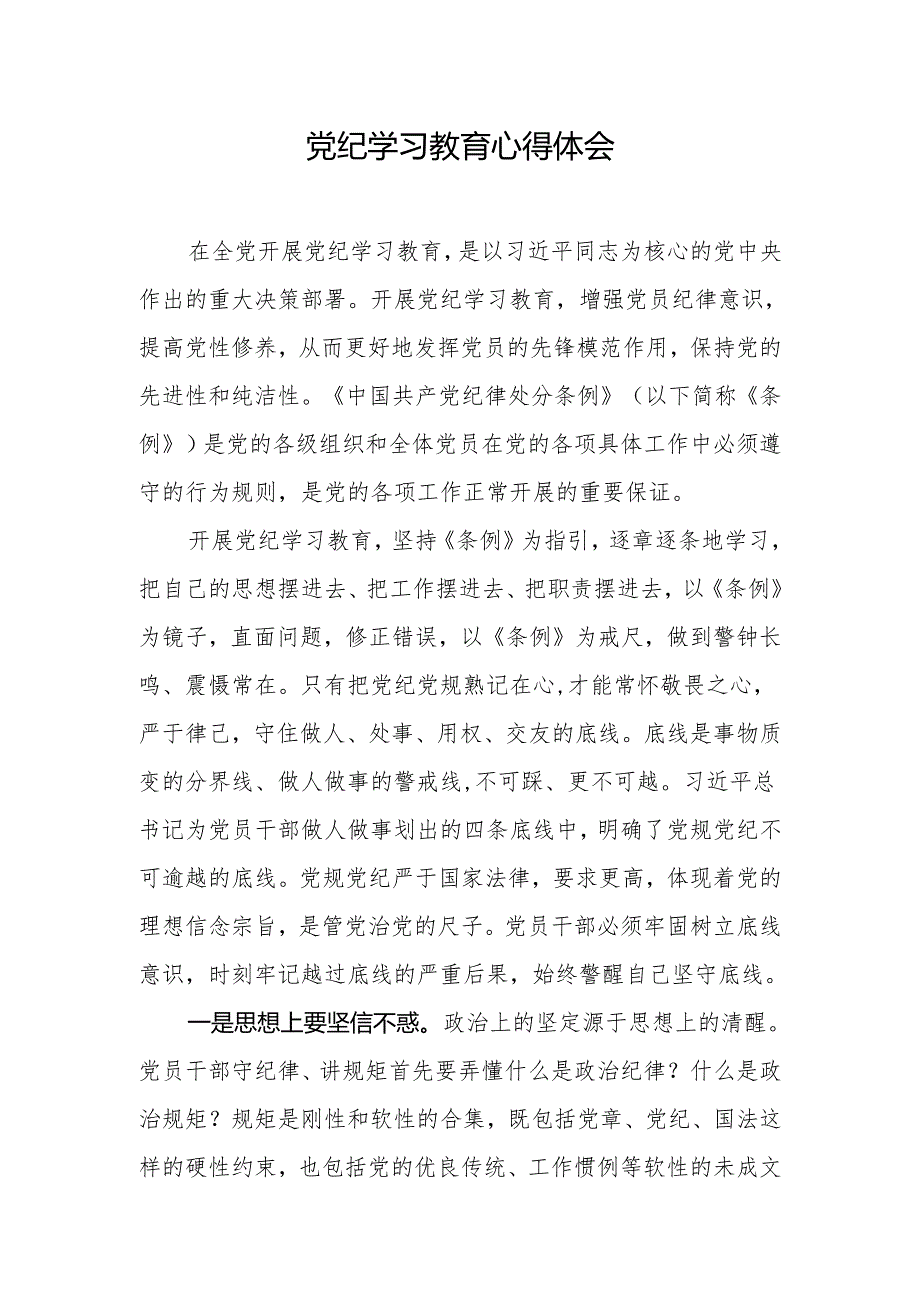 党纪学习教育心得体会
在全党开展党纪学习教育,是以习近平同志为核心的党中央
作出的重大决策部署。开展党纪学习教育，增强党员纪律意识，
提高党性修养，从而更好地发挥党员的先锋模范作用，保持党的
先进性和纯洁性。《中国共产党纪律处分条例》（以下简称《条
例》）是党的各级组织和全体党员在党的各项具体工作中必须遵
守的行为规则，是党的各项工作正常开展的重要保证。
开展党纪学习教育，坚持《条例》为指引，逐章逐条地学习，
把自己的思想摆进去、把工作摆进去、把职责摆进去，以《条例》
为镜子，直面问题，修正错误，以《条例》为戒尺，做到警钟长
鸣、震慑常在。只有把党纪党规熟记在心,才能常怀敬畏之心，
严于律己，守住做人、处事、用权、交友的底线。底线是事物质
变的分界线、做人做事的警戒线,不可踩、更不可越。习近平总
书记为党员干部做人做事划出的四条底线中，明确了党规党纪不
可逾越的底线。党规党纪严于国家法律，要求更高，体现着党的
理想信念宗旨，是管党治党的尺子。党员干部必须牢固树立底线
意识，时刻牢记越过底线的严重后果，始终警醒自己坚守底线。
一是思想上要坚信不惑。政治上的坚定源于思想上的清醒。
党员干部守纪律、讲规矩首先要弄懂什么是政治纪律？什么是政
治规矩？规矩是刚性和软性的合集，既包括党章、党纪、国法这
样的硬性约束，也包括党的优良传统、工作惯例等软性的未成文